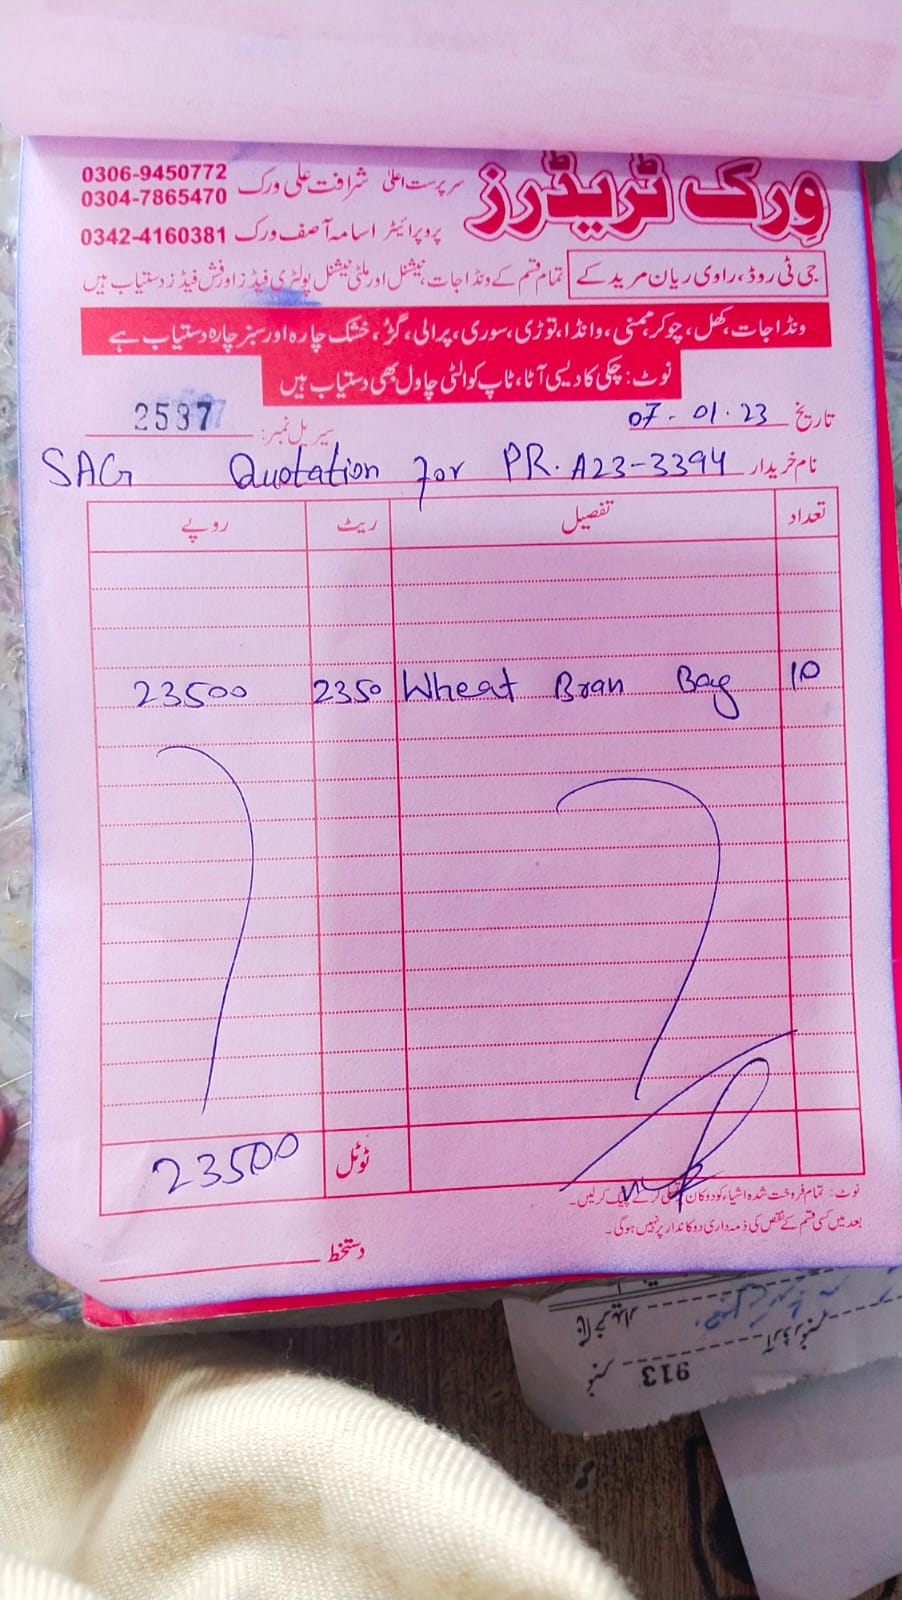 ورک ٹریڈرز
سرپرست اعلیٰ شرافت علی ورک 0306-9450772
0304-7865470
پروپرائیٹر اسامہ آصف ورک 0342-4160381
جی ٹی روڈ، راوی ریان مریدکے
تمام قسم کے ونڈا جات، نیشنل اور ملٹی نیشنل پولٹری فیڈز اور فش فیڈز دستیاب ہیں
ونڈا جات، کھل، چوکر، ممنی، وانڈا، توڑی، سوری، پرالی، گڑ، خشک چارہ اور سبز چارہ دستیاب ہے
نوٹ: چکی کا دیسی آٹا، ٹاپ کوالٹی چاول بھی دستیاب ہیں
تاریخ 07-01-23
سیریل نمبر: 2537
نام خریدار SAG Quotation for PR. A23-3394
تعداد تفصیل ریٹ روپے
10 Wheat Bran Bag 2350 23500
ٹوٹل 23500
نوٹ: تمام فروخت شدہ اشیاء کو دوکان کے چیک کر لیں۔
بعد میں کسی قسم کے نقص کی ذمہ داری دوکاندار پر نہیں ہوگی۔
دستخط
نمبر 913